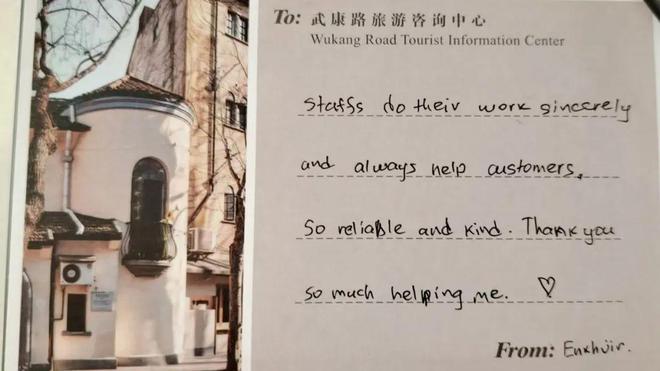 To: 武康路旅游咨询中心
Wukang Road Tourist Information Center
Staffs do their work sincerely
and always help customers.
So reliable and kind. Thank you
so much helping me. ♡
From: Enkhjir.